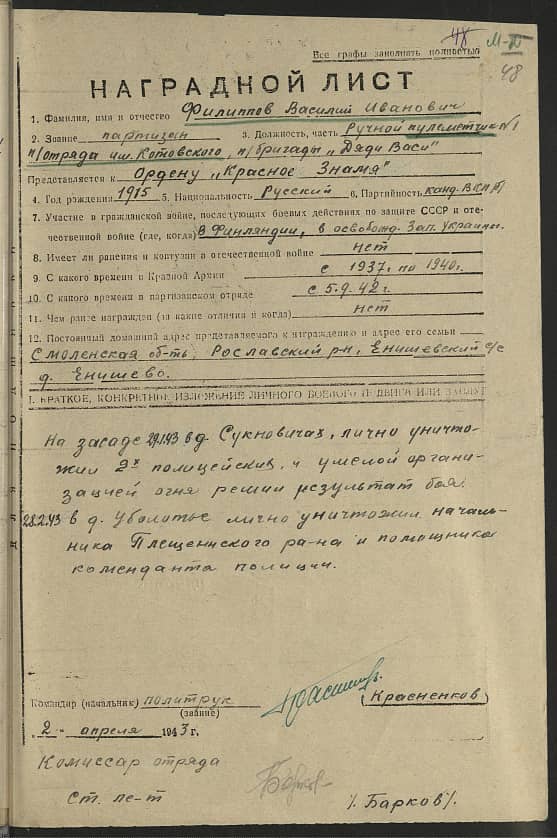 48 М-П
Все графы заполнять полностью
48
НАГРАДНОЙ ЛИСТ
1. Фамилия, имя и отчество Филиппов Василий Иванович
2. Звание партизан 3. Должность, часть Ручной пулеметчик №1
п/отряда им. Котовского, п/бригады "Дяди Васи"
Представляется к Ордену "Красное Знамя"
4. Год рождения 1915 5. Национальность Русский 6. Партийность канд. ВКП/б/
7. Участие в гражданской войне, последующих боевых действиях по защите СССР и оте-
чественной войне (где, когда) в Финляндии, в освобожд. Зап. Украины.
8. Имеет ли ранения и контузии в отечественной войне нет
9. С какого времени в Красной Армии с 1937г. по 1940г.
10. С какого времени в партизанском отряде с 5.9.42г.
11. Чем ранее награжден (за какие отличия и когда) нет
12. Постоянный домашний адрес представляемого к награждению и адрес его семьи
Смоленская об-ть, Рославский рн, Енишевский с/с
д. Енишево.
I. КРАТКОЕ, КОНКРЕТНОЕ ИЗЛОЖЕНИЕ ЛИЧНОГО БОЕВОГО ПОДВИГА ИЛИ ЗАСЛУГ
На засаде в д. Сукновичах, лично уничто-
жил 2х полицейских, и умелой органи-
зацией огня решил результат боя.
28.2.43 в д. Уболотье лично уничтожил началь-
ника Плещенского ра-на и помощника
коменданта полиции.
Командир (начальник) политрук (Красненков)
(звание)
2 - апреля 1943 г.
Комиссар отряда
ст. ле-т /Барков/.